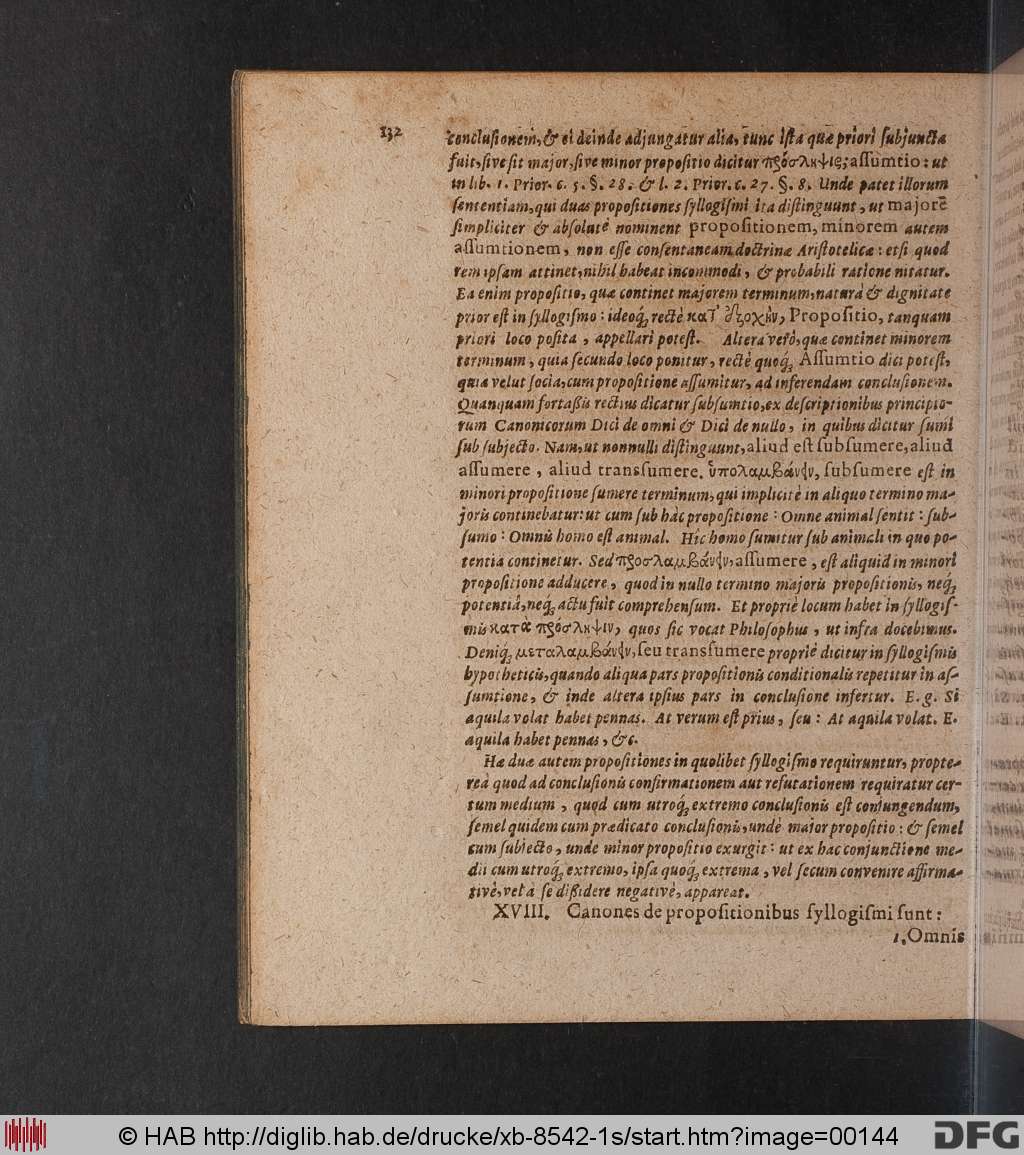 132
conclusionem, & ei deinde adjungatur alia, tunc ista quæ priori subjuncta
fuit, sive sit major, sive minor propositio dicitur πρόσληψις; assumtio: ut
in lib. 1. Prior. c. 5. §. 28. & l. 2. Prior. c. 27. §. 8. Unde patet illorum
sententiam, qui duas propositiones syllogismi ita distinguunt, ut majorē
simpliciter & absolutè nominent propositionem, minorem autem
assumtionem, non esse consentaneam doctrinæ Aristotelicæ: etsi quod
rem ipsam attinet, nihil habeat incommodi, & probabili ratione nitatur.
Ea enim propositio, quæ continet majorem terminum, naturâ & dignitate
prior est in syllogismo: ideoq́; rectè κατ' ἐξοχὴν, Propositio, tanquam
priori loco posita, appellari potest. Altera verò, quæ continet minorem
terminum, quia secundo loco ponitur, rectè quoq́; Assumtio dici potest,
quia velut socia, cum propositione assumitur, ad inferendam conclusionem.
Quanquam fortaßis rectius dicatur subsumtio, ex descriptionibus principio-
rum Canonicorum Dici de omni & Dici de nullo, in quibus dicitur sumi
sub subjecto. Nam, ut nonnulli distinguunt, aliud est subsumere, aliud
assumere, aliud transsumere. ὑπολαμβάνειν, subsumere est in
minori propositione sumere terminum, qui implicitè in aliquo termino ma-
joris continebatur: ut cum sub hac propositione: Omne animal sentit: sub-
sumo: Omnis homo est animal. Hic homo sumitur sub animali in quo po-
tentia continetur. Sed προσλαμβάνειν, assumere, est aliquid in minori
propositione adducere, quod in nullo termino majoris propositionis, neq́;
potentiâ, neq́; actu fuit comprehensum. Et propriè locum habet in syllogis-
mis κατὰ πρόσληψιν, quos sic vocat Philosophus, ut infra docebimus.
Deniq́; μεταλαμβάνειν, seu transsumere propriè dicitur in syllogismis
hypotheticis, quando aliqua pars propositionis conditionalis repetitur in as-
sumtione, & inde altera ipsius pars in conclusione infertur. E. g. Si
aquila volat habet pennas. At verum est prius, seu: At aquila volat. E.
aquila habet pennas, &c.
Hæ duæ autem propositiones in quolibet syllogismo requiruntur, propte-
reà quod ad conclusionis confirmationem aut refutationem requiratur cer-
tum medium, quod cum utroq́; extremo conclusionis est conjungendum,
semel quidem cum prædicato conclusionis, unde major propositio: & semel
cum subjecto, unde minor propositio exurgit: ut ex hac conjunctione me-
dii cum utroq́; extremo, ipsa quoq́; extrema, vel secum convenire affirma-
tivè, vel à se dißidere negativè, appareat.
XVIII. Canones de propositionibus syllogismi sunt:
1. Omnis
© HAB http://diglib.hab.de/drucke/xb-8542-1s/start.htm?image=00144
DFG